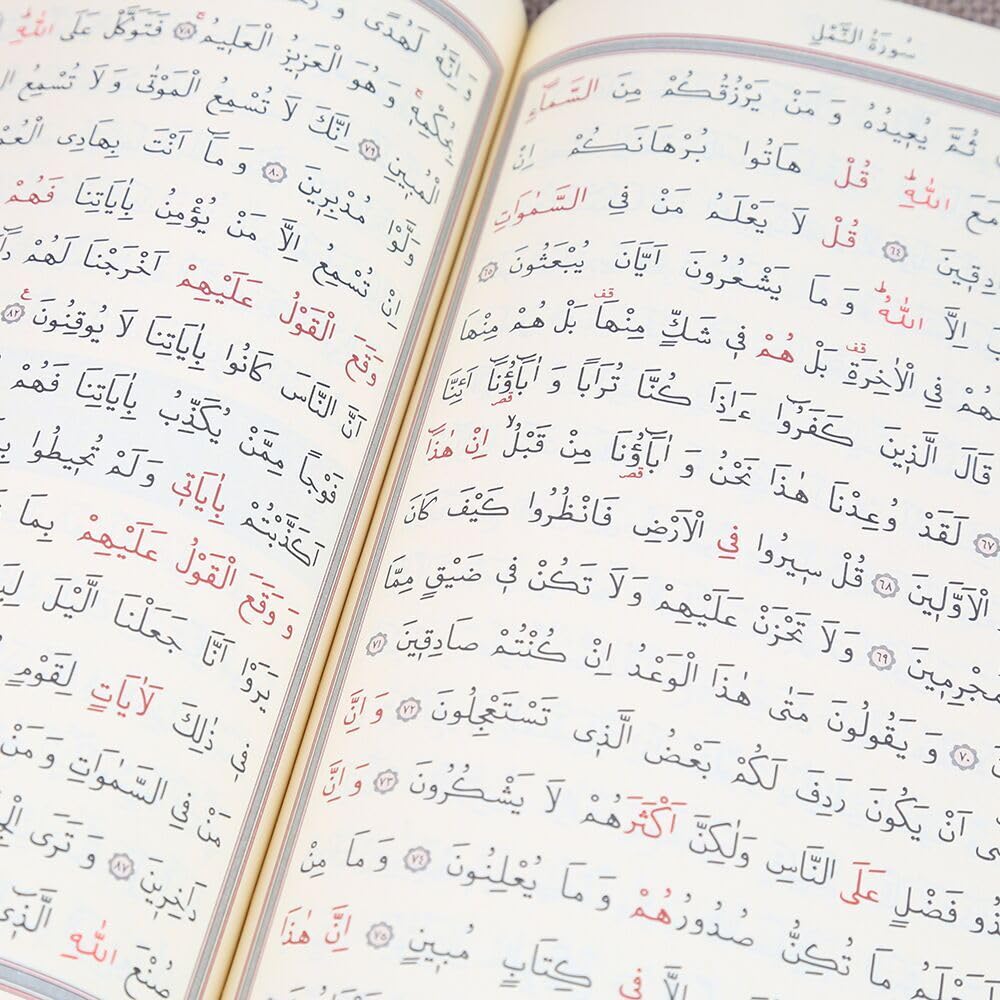 سُورَةُ النَّمْلِ
ثُمَّ يُعِيدُهُ وَمَنْ يَرْزُقُكُمْ مِنَ السَّمَٓاءِ
مَعَ اللّٰهِ قُلْ هَاتُوا بُرْهَانَكُمْ اِنْ
دِقِينَ ﴿٦٤﴾ قُلْ لَا يَعْلَمُ مَنْ فِي السَّمٰوَاتِ
بَ اِلَّا اللّٰهُ وَمَا يَشْعُرُونَ اَيَّانَ يُبْعَثُونَ ﴿٦٥﴾
هُمْ فِي الْاٰخِرَةِ بَلْ هُمْ فِي شَكٍّ مِنْهَا بَلْ هُمْ مِنْهَا
قَالَ الَّذِينَ كَفَرُٓوا ءَاِذَا كُنَّا تُرَابًا وَاٰبَٓاؤُنَٓا اَئِنَّا
﴿٦٧﴾ لَقَدْ وُعِدْنَا هٰذَا نَحْنُ وَاٰبَٓاؤُنَا مِنْ قَبْلُ اِنْ هٰذَٓا
الْاَوَّلِينَ ﴿٦٨﴾ قُلْ سِيرُوا فِي الْاَرْضِ فَانْظُرُوا كَيْفَ كَانَ
مُجْرِمِينَ ﴿٦٩﴾ وَلَا تَحْزَنْ عَلَيْهِمْ وَلَا تَكُنْ فِي ضَيْقٍ مِمَّا
﴿٧٠﴾ وَيَقُولُونَ مَتٰى هٰذَا الْوَعْدُ اِنْ كُنْتُمْ صَادِقِينَ ﴿٧١﴾
اَنْ يَكُونَ رَدِفَ لَكُمْ بَعْضُ الَّذِي تَسْتَعْجِلُونَ ﴿٧٢﴾ وَاِنَّ
ذُو فَضْلٍ عَلَى النَّاسِ وَلٰكِنَّ اَكْثَرَهُمْ لَا يَشْكُرُونَ ﴿٧٣﴾ وَاِنَّ
مَا تُكِنُّ صُدُورُهُمْ وَمَا يُعْلِنُونَ ﴿٧٤﴾ وَمَا مِنْ
اِلَّا فِي كِتَابٍ مُبِينٍ ﴿٧٥﴾ اِنَّ هٰذَا
وَاِنَّهُ لَهُدًى وَ
بِحُكْمِهِ وَهُوَ الْعَزِيزُ الْعَلِيمُ ﴿٧٨﴾ فَتَوَكَّلْ عَلَى اللّٰهِ
الْمُبِينِ ﴿٧٩﴾ اِنَّكَ لَا تُسْمِعُ الْمَوْتٰى وَلَا تُسْمِعُ
وَلَّوْا مُدْبِرِينَ ﴿٨٠﴾ وَمَٓا اَنْتَ بِهَادِي
اِنْ تُسْمِعُ اِلَّا مَنْ يُؤْمِنُ بِاٰيَاتِنَا فَهُمْ
وَقَعَ الْقَوْلُ عَلَيْهِمْ اَخْرَجْنَا لَهُمْ
اَنَّ النَّاسَ كَانُوا بِاٰيَاتِنَا لَا يُوقِنُونَ ﴿٨٢﴾
فَوْجًا مِمَّنْ يُكَذِّبُ بِاٰيَاتِنَا فَهُمْ
اَكَذَّبْتُمْ بِاٰيَاتِي وَلَمْ تُحِيطُوا
وَوَقَعَ الْقَوْلُ عَلَيْهِمْ بِمَا
يَرَوْا اَنَّا جَعَلْنَا الَّيْلَ
فِي ذٰلِكَ لَاٰيَاتٍ لِقَوْمٍ
مَنْ فِي السَّمٰوَاتِ وَمَنْ
دَاخِرِينَ ﴿٨٧﴾ وَتَرَى
صُنْعَ اللّٰهِ الَّذِٓي